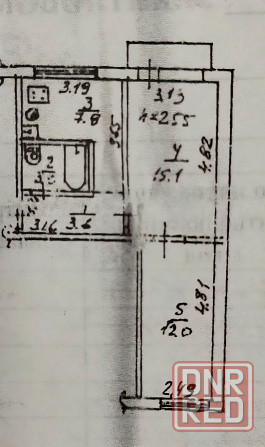 3.19
3
7.8
3.13
h=2.55
3.65
4.82
4
15.1
2
1
3.16
3.6
4.81
5
12.0
2.49
DNR
RED